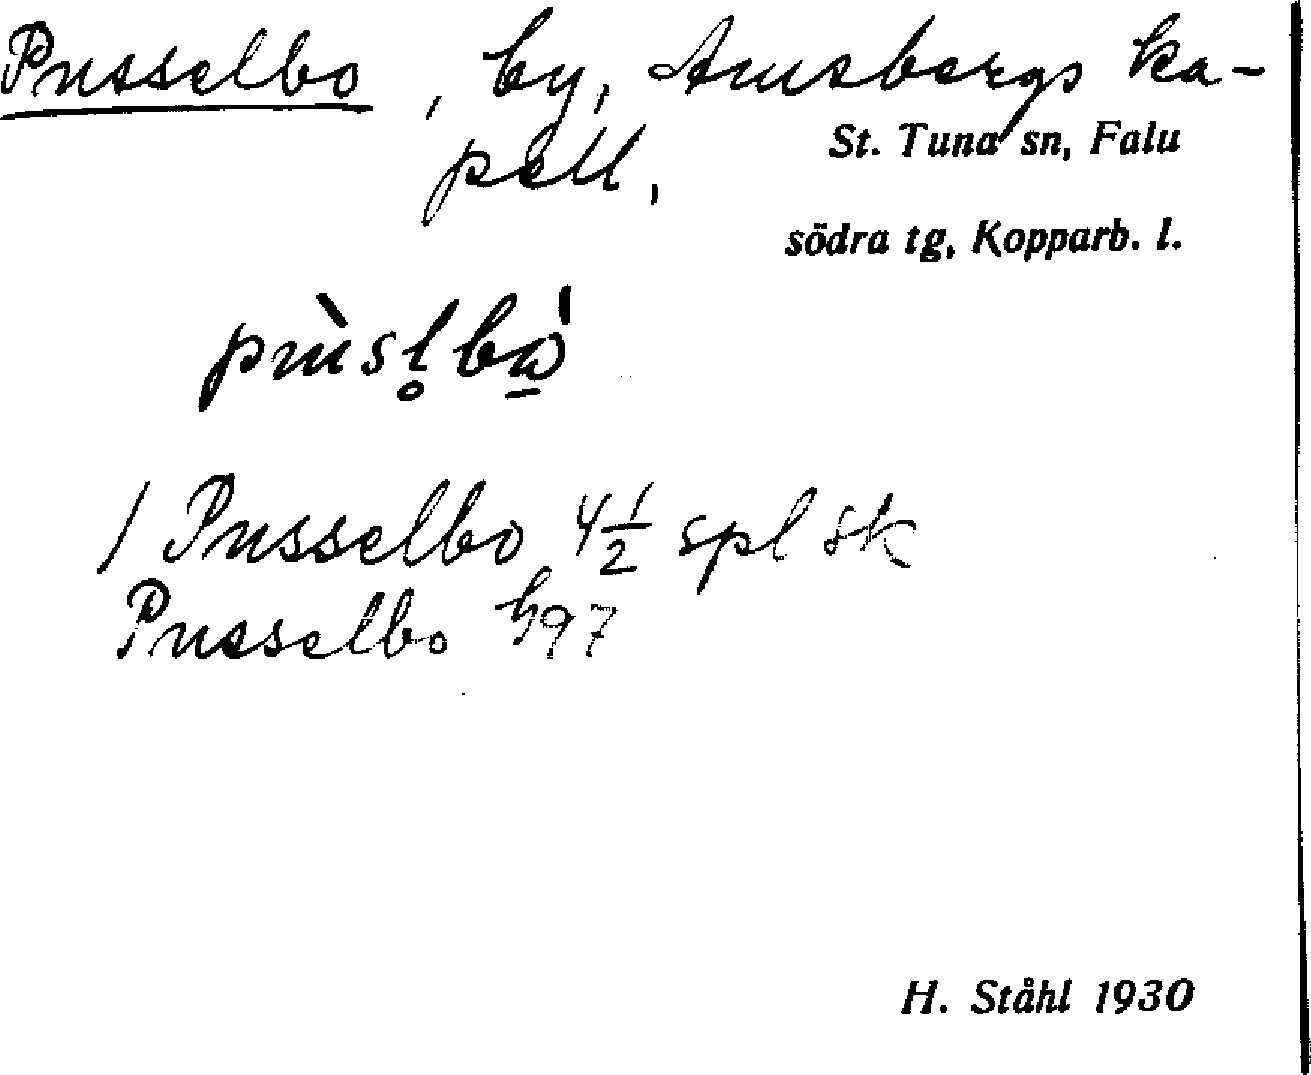 Pusselbo, by, Amsbergs ka-
pell,
St. Tuna sn, Falu
södra tg, Kopparb. l.
1 Pusselbo 4½ spl sk
Pusselbo h97
H. Ståhl 1930